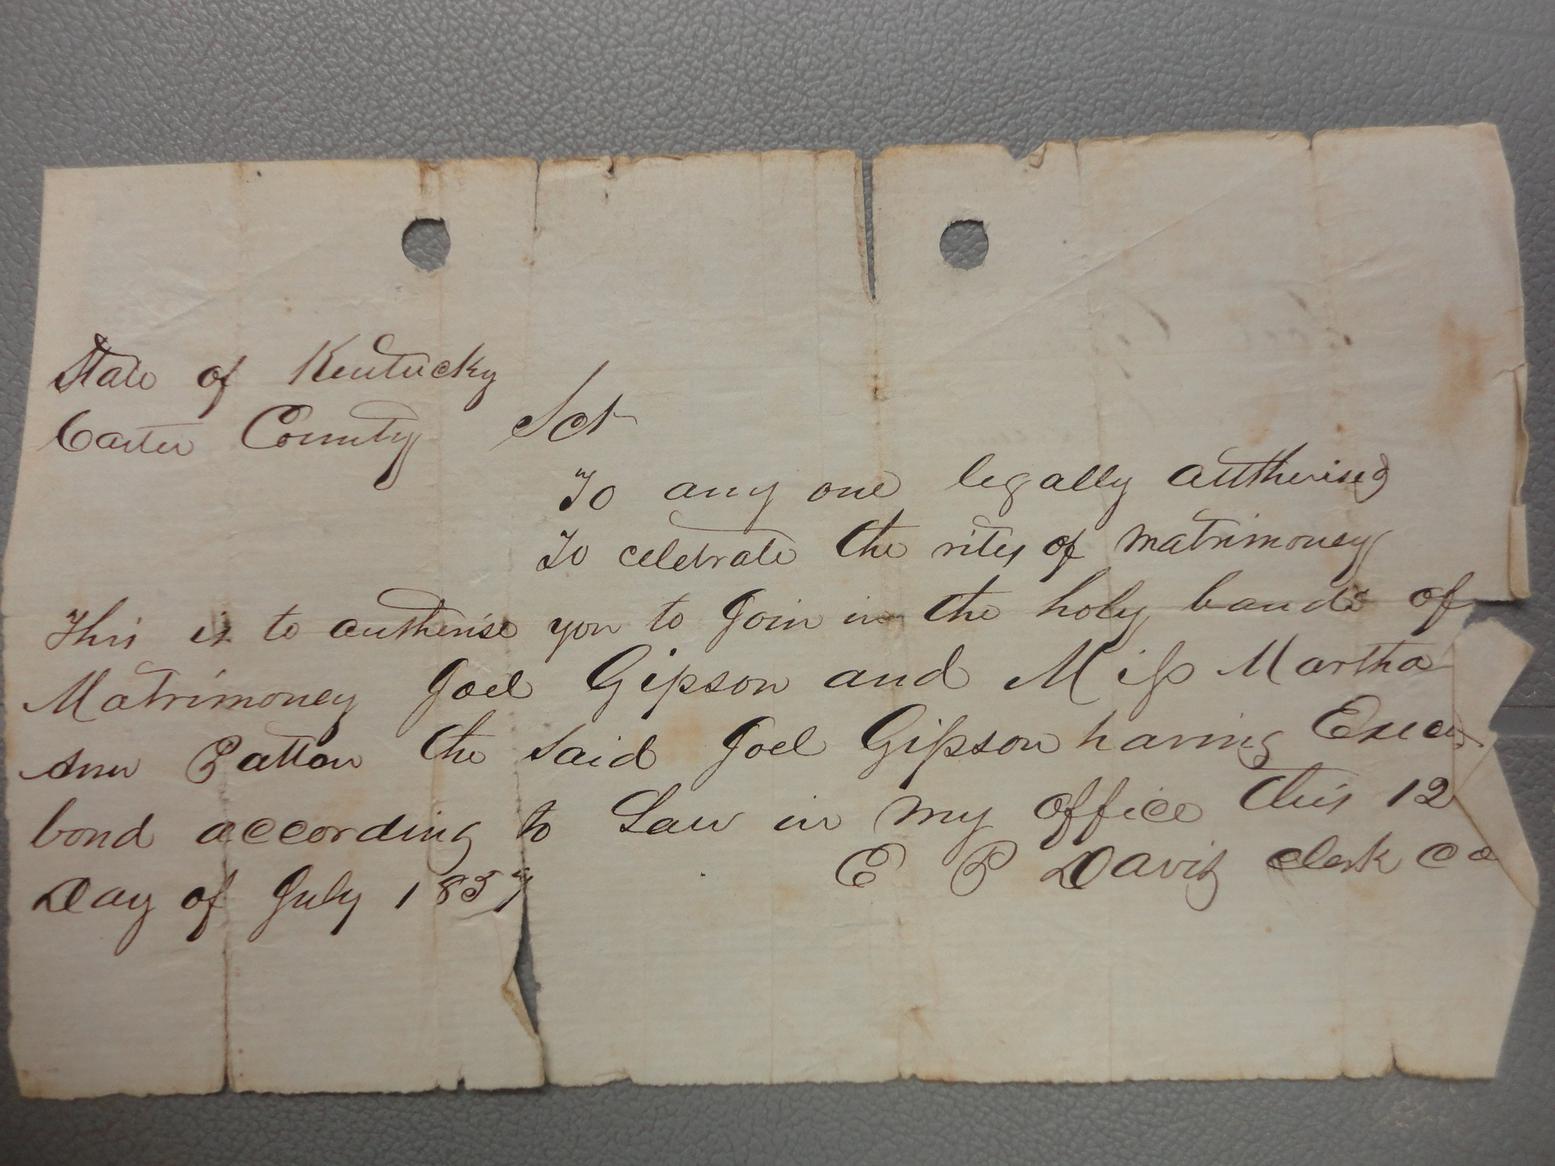 State of Kentucky
Carter County Sct
To any one legally authorised
To celebrate the rites of matrimoney
This is to authorise you to Join in the holy bands of
Matrimoney Joel Gipson and Miss Martha
Ann Patton the Said Joel Gipson having Execu
bond according to Law in my office this 12
Day of July 1857 E P Davis clerk CC